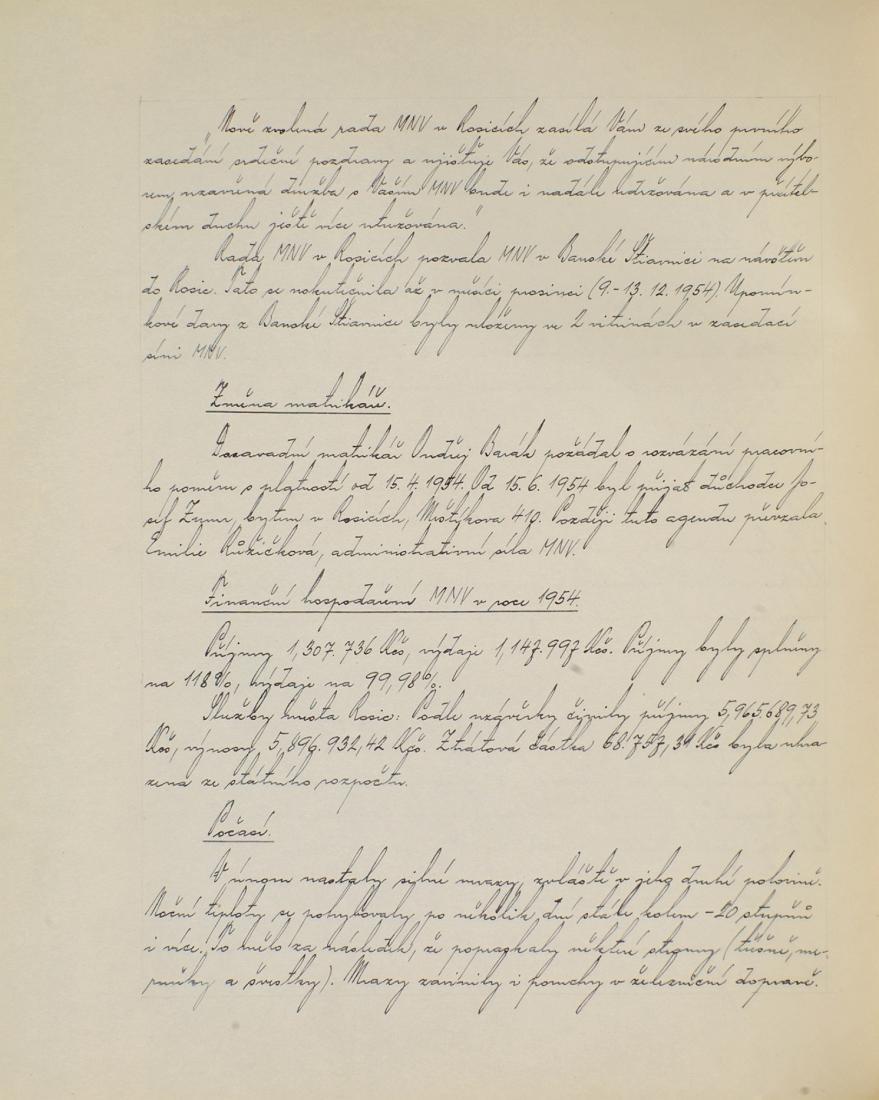 „Nově zvolená rada MNV v Rosicích zasílá Vám ze svého prvního
zasedání srdečné pozdravy a ujišťuje Vás, že odstupujícím národním výbo-
rem uzavřená družba s Vaším MNV bude i nadále udržována a v přátel-
ském duchu ještě více utužována."
Rada MNV v Rosicích pozvala MNV v Banské Štiavnici na návštěvu
do Rosic. Tato se uskutečnila až v měsíci prosinci (9.-13.12.1954). Upomín-
kové dary z Banské Štiavnice byly uloženy ve 2 vitrinách v zasedací
síni MNV.
Změna matrikáře.
Dosavadní matrikář Ondřej Barák požádal o rozvázání pracovní-
ho poměru s platností od 15.4.1954. Od 15.6.1954 byl přijat důchodce Jo-
sef Zymr, bytem v Rosicích, Mištíkova 410. Později tuto agendu převzala
Emilie Růžičková, administrativní síla MNV.
Finanční hospodaření MNV v roce 1954.
Příjmy 1,307.736 Kčs, výdaje 1,147.997 Kčs. Příjmy byly splněny
na 118%, výdaje na 99,98%.
Služby města Rosic: Podle uzávěrky činily příjmy 5,965.689,73
Kčs, výnosy 5,896.932,42 Kčs. Ztrátová částka 68.757,31 Kčs byla uhra-
zena ze státního rozpočtu.
Počasí.
V únoru nastaly silné mrazy, zvláště v jeho druhé polovině.
Noční teploty se pohybovaly po několik dní stále kolem -20 stupňů
i více. To mělo za následek, že popraskaly některé stromy (třešně, me-
ruňky a švestky). Mrazy zavinily i poruchy v železniční dopravě.